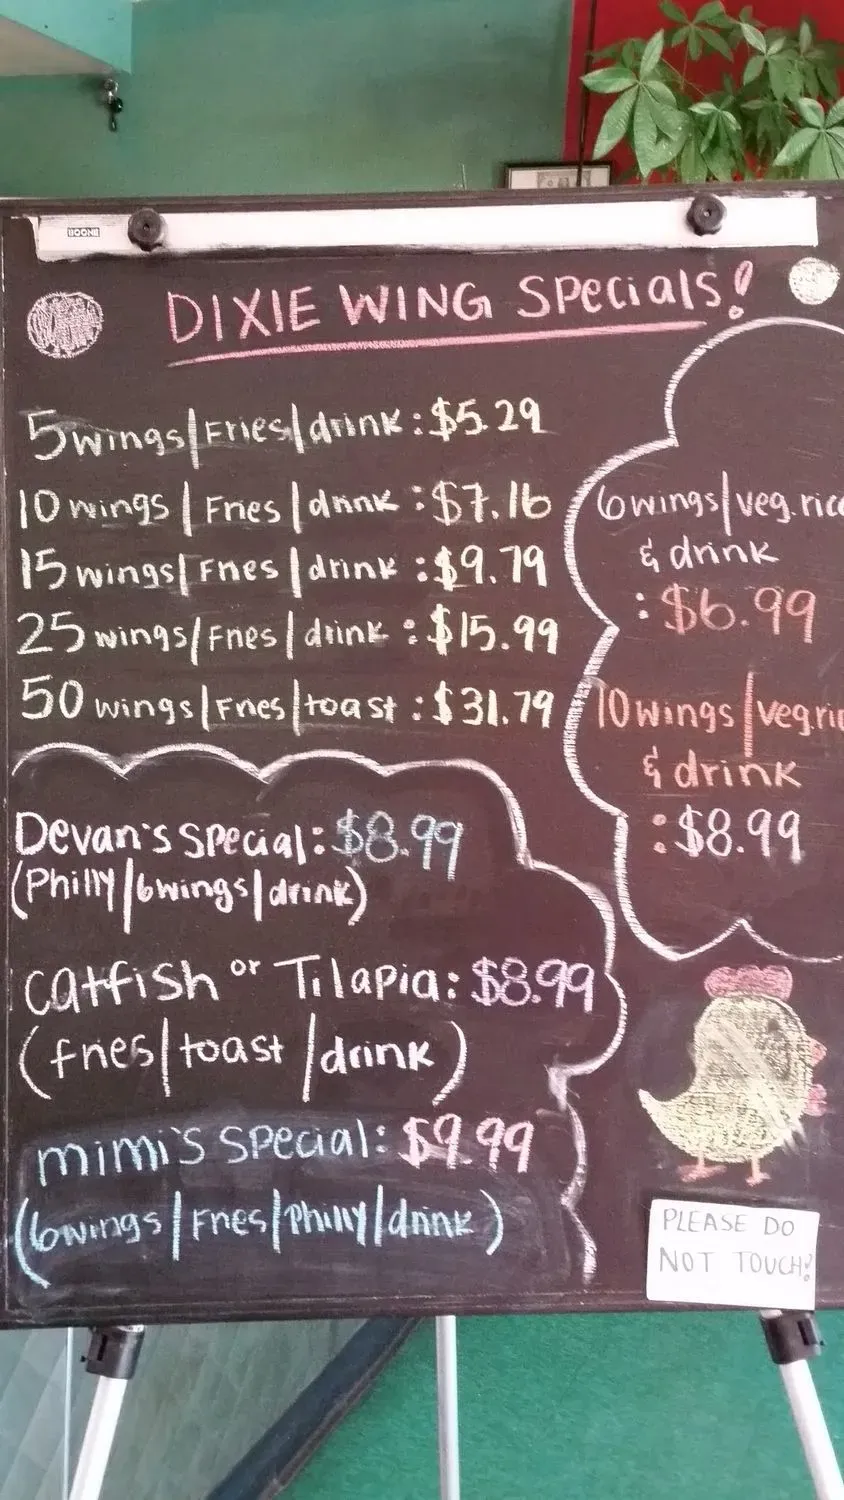 BOONE
DIXIE WING Specials!
5 wings/Fries/drink: $5.29
10 wings/Fries/drink: $7.16
15 wings/Fries/drink: $9.79
25 wings/Fries/drink: $15.99
50 wings/Fries/toast: $31.79
6 wings/veg. rice
& drink
: $6.99
10 wings/veg. ric
& drink
: $8.99
Devan's Special: $8.99
(Philly/6wings/drink)
Catfish or Tilapia: $8.99
(fries/toast/drink)
mimi's Special: $9.99
(6wings/Fries/Philly/drink)
PLEASE DO
NOT TOUCH!